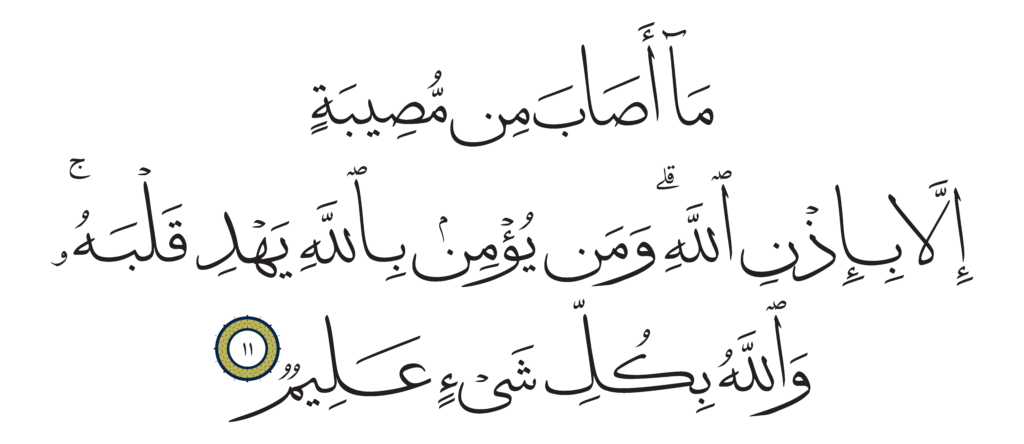 مَآ أَصَابَ مِن مُّصِيبَةٍ
إِلَّا بِإِذۡنِ ٱللَّهِۗ وَمَن يُؤۡمِنۢ بِٱللَّهِ يَهۡدِ قَلۡبَهُۥۚ
وَٱللَّهُ بِكُلِّ شَيۡءٍ عَلِيمٞ ١١